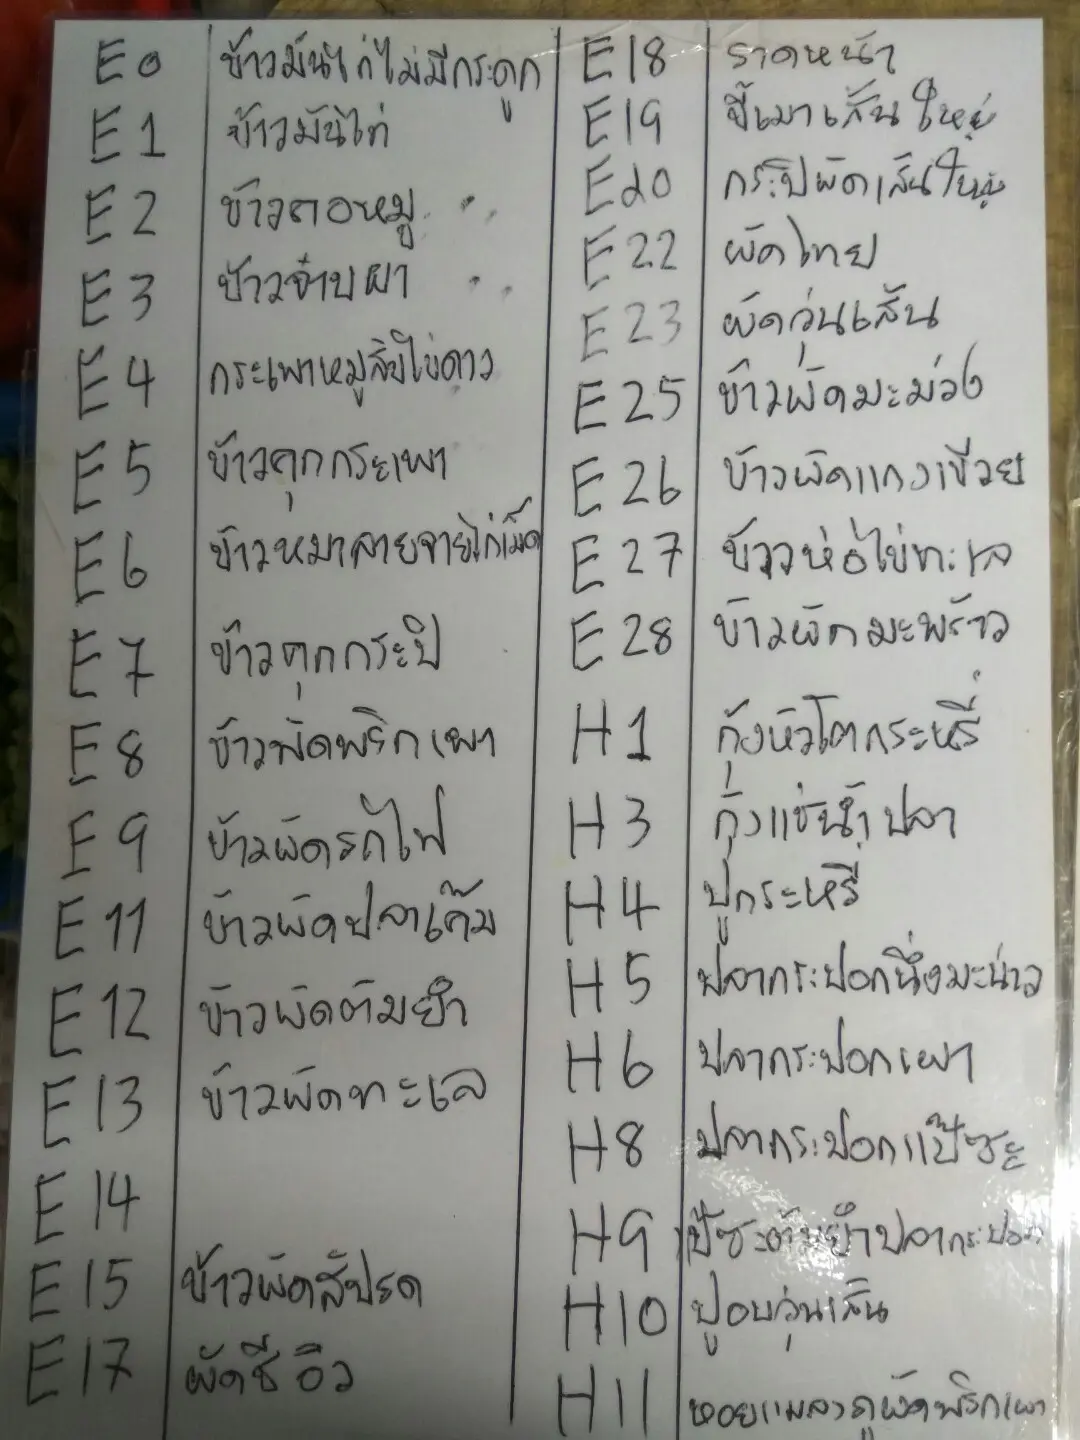 E0 ข้าวมันไก่ไม่มีกระดูก
E1 ข้าวมันไก่
E2 ข้าวขาหมู
E3 ข้าว
E4 กระเพาหมูสับไข่ดาว
E5 ข้าวคุกกระเพา
E6 ข้าวหมาลายจายไก่เม็ด
E7 ข้าวคุกกระปิ
E8 ข้าวผัดพริกเผา
E9 ข้าวผัดรถไฟ
E11 ข้าวผัดปลาเค็ม
E12 ข้าวผัดต้มยำ
E13 ข้าวผัดทะเล
E14
E15 ข้าวผัดสัปรด
E17 ผัดซีอิว
E18 ราดหน้า
E19 ขี้เมาเส้นใหญ่
E20 กระปิผัดเส้นใหญ่
E22 ผัดไทย
E23 ผัดวุ่นเส้น
E25 ข้าวผัดมะม่วง
E26 ข้าวผัดแกงเขียว
E27 ข้าวห่อไข่ทะเล
E28 ข้าวผัดมะพร้าว
H1 กุ้งหัวโตกระหรี่
H3 กุ้งแช่น้ำปลา
H4 ปูกระหรี่
H5 ปลากระปอกนึ่งมะนาว
H6 ปลากระปอกเผา
H8 ปลากระปอกแป๊ะซะ
H9 แป๊ะซะต้มยำปลากระปอก
H10 ปูอบวุ่นเส้น
H11 หอยแมลงภู่ผัดพริกเผา